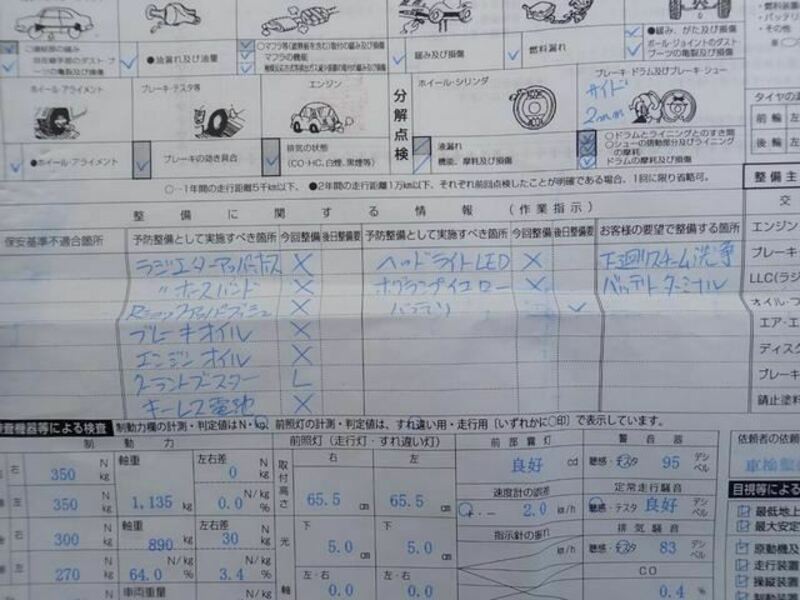 ●油漏れ及び油量
緩み及び損傷
燃料漏れ
●緩み、がた及び損傷
ボール・ジョイントのダスト・ブーツの亀裂及び損傷
・バッテリ
・その他
ホイール・アライメント
ブレーキ・テスタ等
エンジン
分解点検
ホイール・シリンダ
ブレーキ・ドラム及びブレーキ・シュー
サイド
2mm
●ホイール・アライメント
ブレーキの効き具合
排気の状態
(CO・HC、白煙、黒煙等)
液漏れ
機能、摩耗及び損傷
○ドラムとライニングとのすき間
○シューの摺動部分及びライニングの摩耗
ドラムの摩耗及び損傷
○…1年間の走行距離5千km以下、●2年間の走行距離1万km以下、それぞれ前回点検したことが明確である場合、1回に限り省略可。
タイヤの
前輪 左
後輪 左
整備に関する情報 (作業指示)
整備主
保安基準不適合箇所 予防整備として実施すべき箇所 今回整備 後日整備要 予防整備として実施すべき箇所 今回整備 後日整備要 お客様の要望で整備する箇所
交
ラジエターアッパホース × ヘッドライトLED × 下廻りスチーム洗浄
エンジン
〃ホースバンド × ×
ブレーキ
LLC(ラジ
バッテリ ✓
ブレーキオイル ×
エア・エ
エンジンオイル ×
ディスク
クーラントブースター レ
ブレーキ
キーレス電池 ×
錆止塗料
検査機器等による検査 制動力欄の計測・判定値はN・kg、前照灯の計測・判定値は、すれ違い用・走行用〔いずれかに○印〕で表示しています。
制動力
前照灯 (走行灯・すれ違い灯)
前部霧灯
警音器
依頼者の依頼
右 350 N kg 軸重 1,135 kg 左右差 0 N kg
取付高さ 右 65.5 cm 左 65.5 cm
良好 cd
聴感・テスタ 95 デシベル
車検整
左 350 N kg 0.0 N/kg %
速度計の誤差
+ . - 2.0 km/h
定常走行騒音
聴感・テスタ 良好 デシベル
目視等によ
最低地上
最大安定
右 300 N kg 軸重 890 kg 左右差 30 N kg
光軸 下 5.0 cm 下 5.0 cm
指示計の振れ
km/h
排気騒音
聴感・テスタ 83 デシベル
原動機及
左 270 N kg 64.0 N/kg % 3.4 N/kg %
左・右 0.0 左・右 0.0
CO
0.4 %
走行装置
操縦装置
制動装置
車両重量